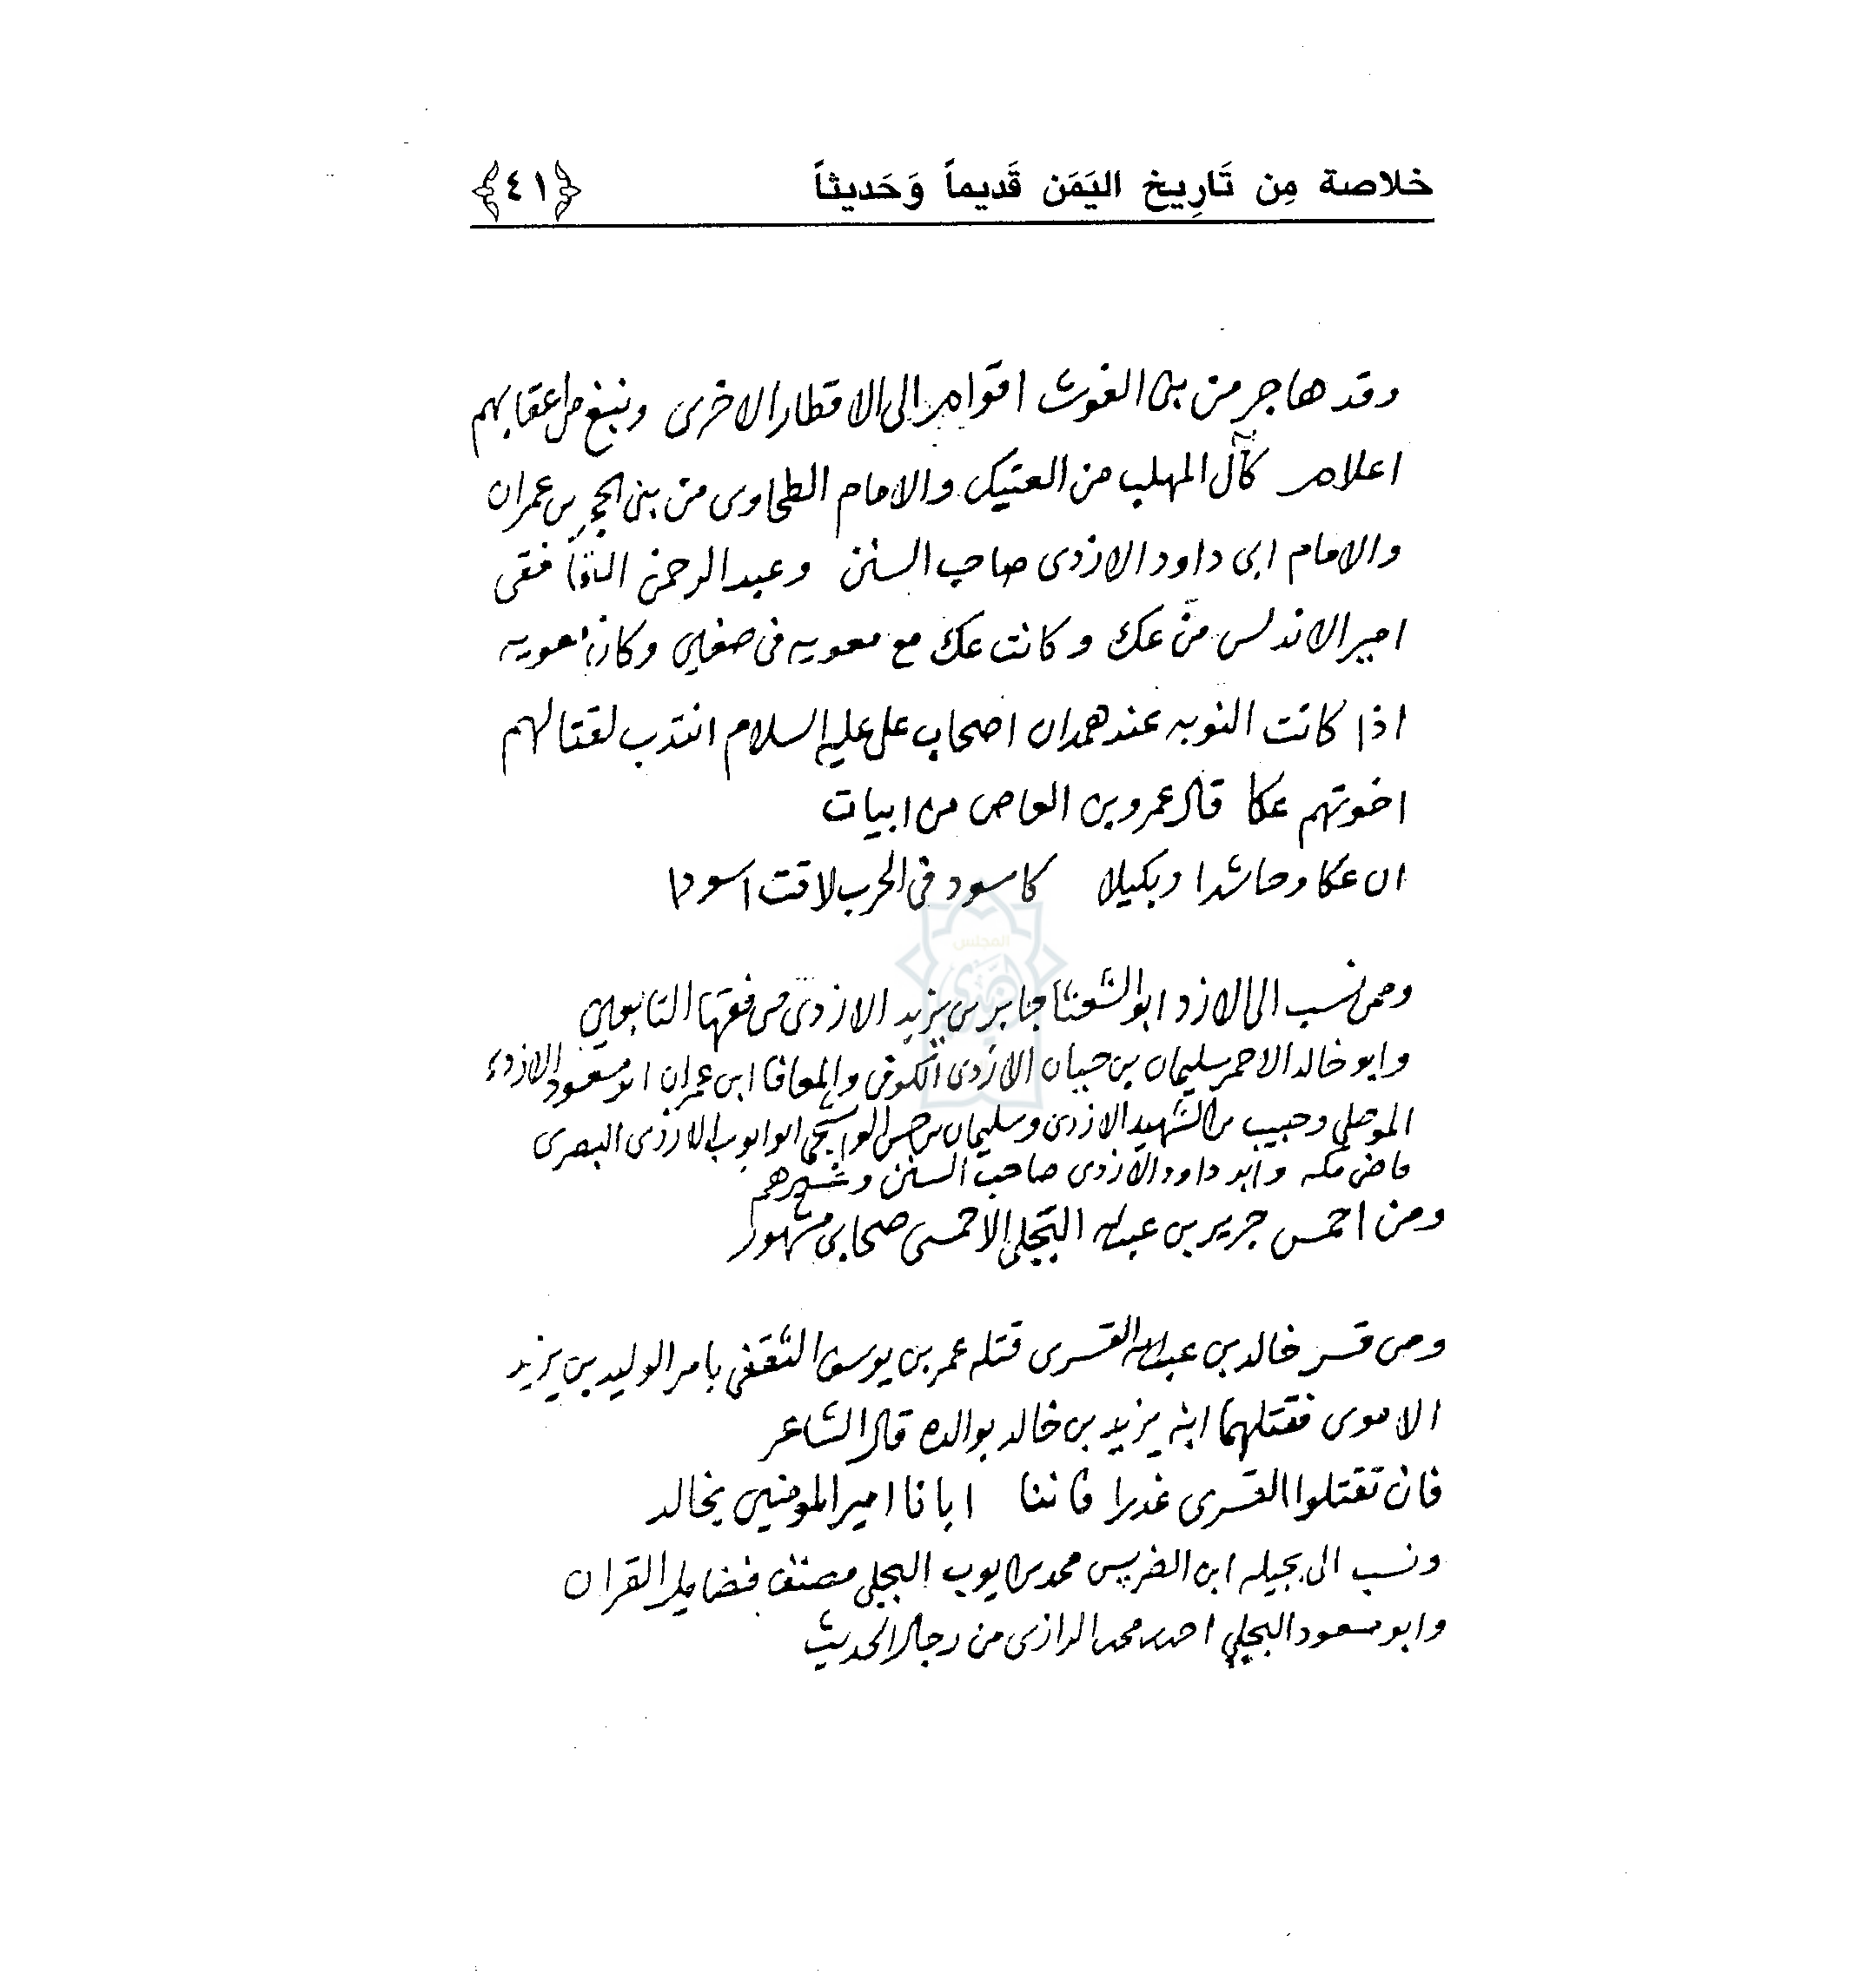 خلاصة مِن تَارِيخ اليَمَن قَديماً وَحَديثاً ﴿٤١﴾
وقد هاجر من بنى الغوث اقوام الى الاقطار الاخرى ونبغ من اعقابهم
اعلام كآل المهلب من العتيك والامام الطحاوى من بنى الحجر بن عمران
والامام ابى داود الازدى صاحب السنن وعبد الرحمن الغافقى
امير الاندلس من عك وكانت عك مع معويه فى صفين وكان معويه
اذا كانت النوبه عند همدان اصحاب على عليه السلام انتدب لقتالهم
اخوتهم عكا قال عمرو بن العاص من ابيات
ان عكا وحاشدا وبكيلا كاسود فى الحرب لاقت اسودا
وممن نسب الى الازد ابو الشعثا جابر بن يزيد الازدى من فقها التابعين
وابو خالد الاحمر سليمان بن حبان الازدى الكوفى والمعافا ابن عمران ابو مسعود الازدى
الموصلى وحبيب بن الشهيد الازدى وسليمان بن حرب الواشحى ابو ايوب الازدى البصرى
قاضى مكه وابو داود الازدى صاحب السنن وغيرهم
ومن احمس جرير بن عبدالله البجلى الاحمسى صحابى مشهور
ومن قسر خالد بن عبدالله القسرى قتله عمر بن يوسف الثقفى بامر الوليد بن يزيد
الاموى فقتلهما ابنه يزيد بن خالد بوالده قال الشاعر
فان تقتلوا القسرى غدرا فاننا ابانا امير المومنين بخالد
ونسب الى بجيله ابن الضريس محمد بن ايوب البجلى مصنف فضايل القران
وابو مسعود البجلى احمد بن محمد الرازى من رجال الحديث
المجلس